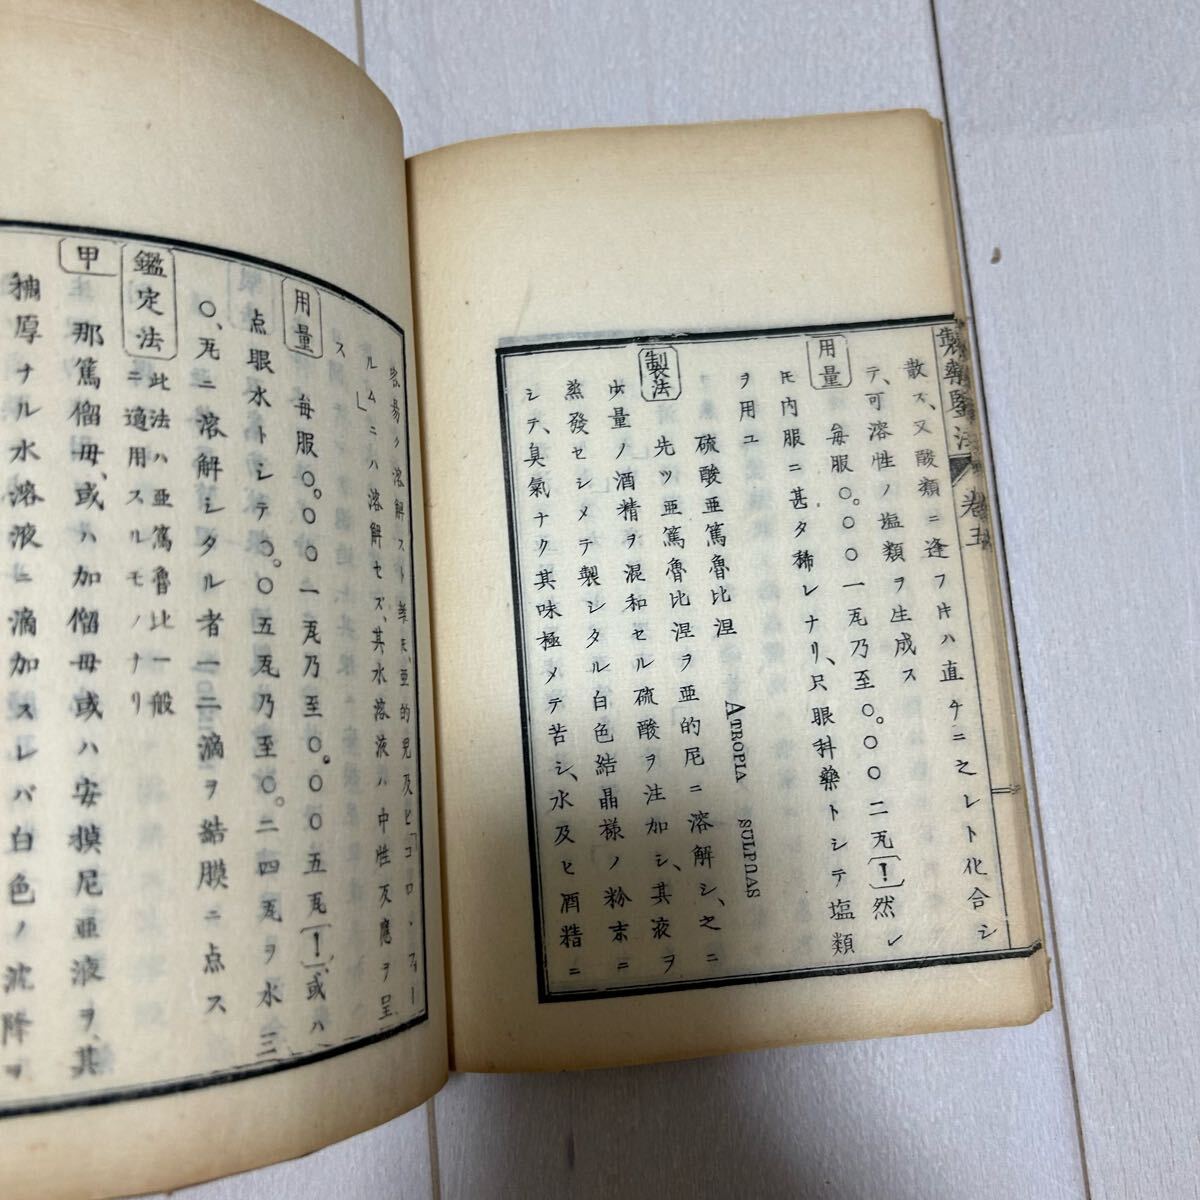 製藥監法 卷五
散ス、又酸類ニ逢フ片ハ直チニ之レト化合シ
テ、可溶性ノ塩類ヲ生成ス
用量 每服〇。〇〇一瓦乃至〇。〇〇二瓦〔!〕然レ
𪜈内服ニ甚タ稀レナリ、只眼科藥トシテ塩類
ヲ用ユ
硫酸亜篤魯比涅 ATROPIA SULPHAS
製法 先ツ亜篤魯比涅ヲ亜的尼ニ溶解シ、之ニ
少量ノ酒精ヲ混和セル硫酸ヲ注加シ、其液ヲ
蒸發セシメテ製シタル白色結晶様ノ粉末ニ
シテ、臭氣ナク其味極メテ苦シ、水及ヒ酒精ニ
容易ク溶解スト雖𪜈、亜的児及ヒ「コロ、フォー
ルムニハ溶解セズ、其水溶液ハ中性反應ヲ呈
ス
用量 每服〇。〇〇一瓦乃至〇。〇〇五瓦〔!〕、或ハ
点眼水トシテ〇。〇五瓦乃至〇。二四瓦ヲ水三
〇、瓦ニ溶解シタル者一二滴ヲ結膜ニ点ス
鑑定法 此法ハ亜篤魯比一般
ニ適用スルモノナリ
甲 那篤倔母、或ハ加倔母或ハ安摸尼亜液ヲ、其
稠厚ナル水溶液ニ滴加スレバ白色ノ沈降ヲ